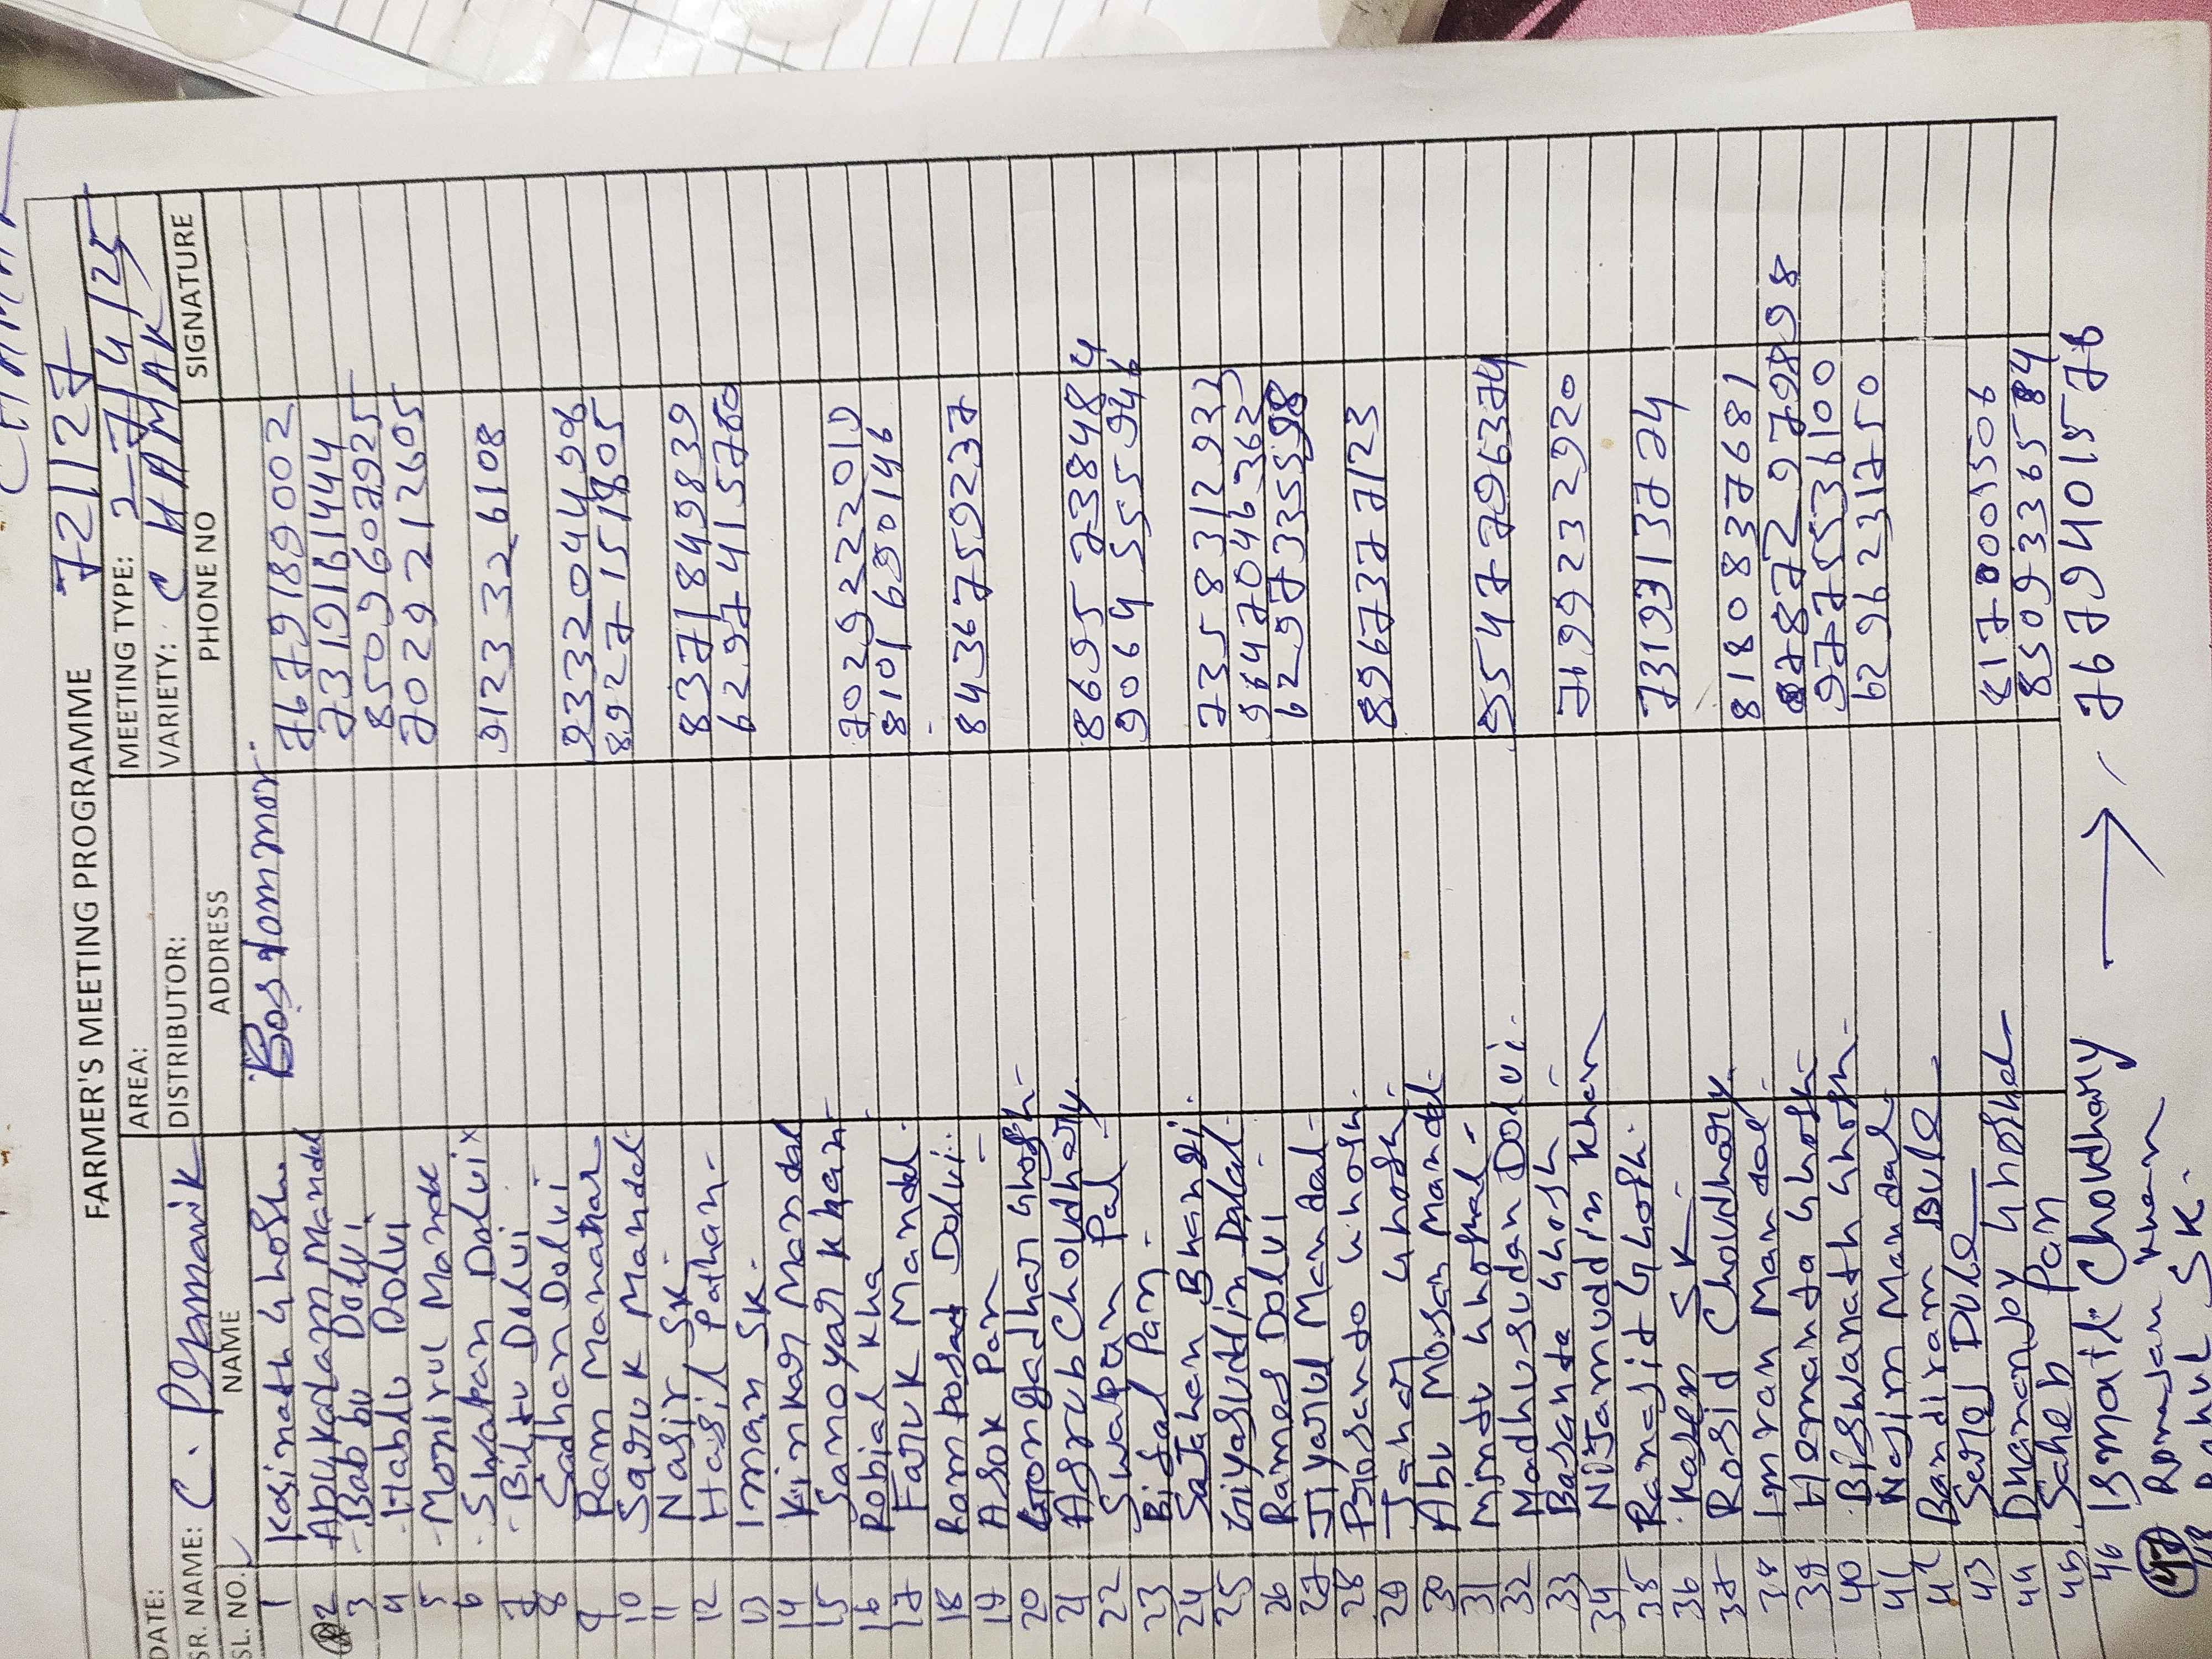 FARMER'S MEETING PROGRAMME 72127
DATE: AREA: MEETING TYPE: 2-7/4/25
SR. NAME: C. Pramanik DISTRIBUTOR: VARIETY: CHAMAK
SL. NO. NAME ADDRESS PHONE NO SIGNATURE
1 Kasinath Ghosh Bostommor 7679189002
2 Abukadam Mandal 7319161444
3 Babbu Dolvi 8509607925
4 Hablu Dolui 7029721 2605
5 Monirul Manda
6 Swapan Dolui x 9123326108
7 Biltu Dolui
8 Sadhan Dolui 9332044996
9 Ram Manathar 8927151805
10 Saruk Mandal
11 Nasir SK. 8371849839
12 Hasil Pathan 6297415780
13 Iman SK.
14 Kinkar Mandal
15 Sanoyar Khan 7029222019
16 Robial Kha 8101690146
17 Faruk Mandal.
18 Ramposad Dolui. 8436759237
19 Asok Pan
20 Gongadhar Ghosh
21 Asrub Choudhary 8695738484
22 Swapan Pal 9064555946
23 Bifal Pan.
24 Sajahan Bhangi. 7358312933
25 Giyasuddin Dalal. 9647046362
26 Rames Dolui 6297335598
27 Jiyarul Mandal
28 Prosanto Ghosh. 8967377123
29 Jahar Ghosh
30 Abu Mosan Mandal.
31 Mindu Ghoshal 9547796374
32 Madhusudan Dolui.
33 Basanta Ghosh 7699232920
34 Nijamuddin Khan
35 Ranajit Ghosh. 7319913774
36 Kasen SK
37 Rosid Choudhary 8180837681
38 Imran Mandal 87872979898
39 Hemanta Ghosh 9775536100
40 Biswanath Ghosh. 6296231750
41 Najim Mandal
42 Bandiram Bule
43 Serel Dule 8170001506
44 Dhananjoy Ghoshal 8509336584
45. Saheb Pan
46 Ismail Choudhary → 7679401576
47 Romejan Khan
48 Rahul SK.